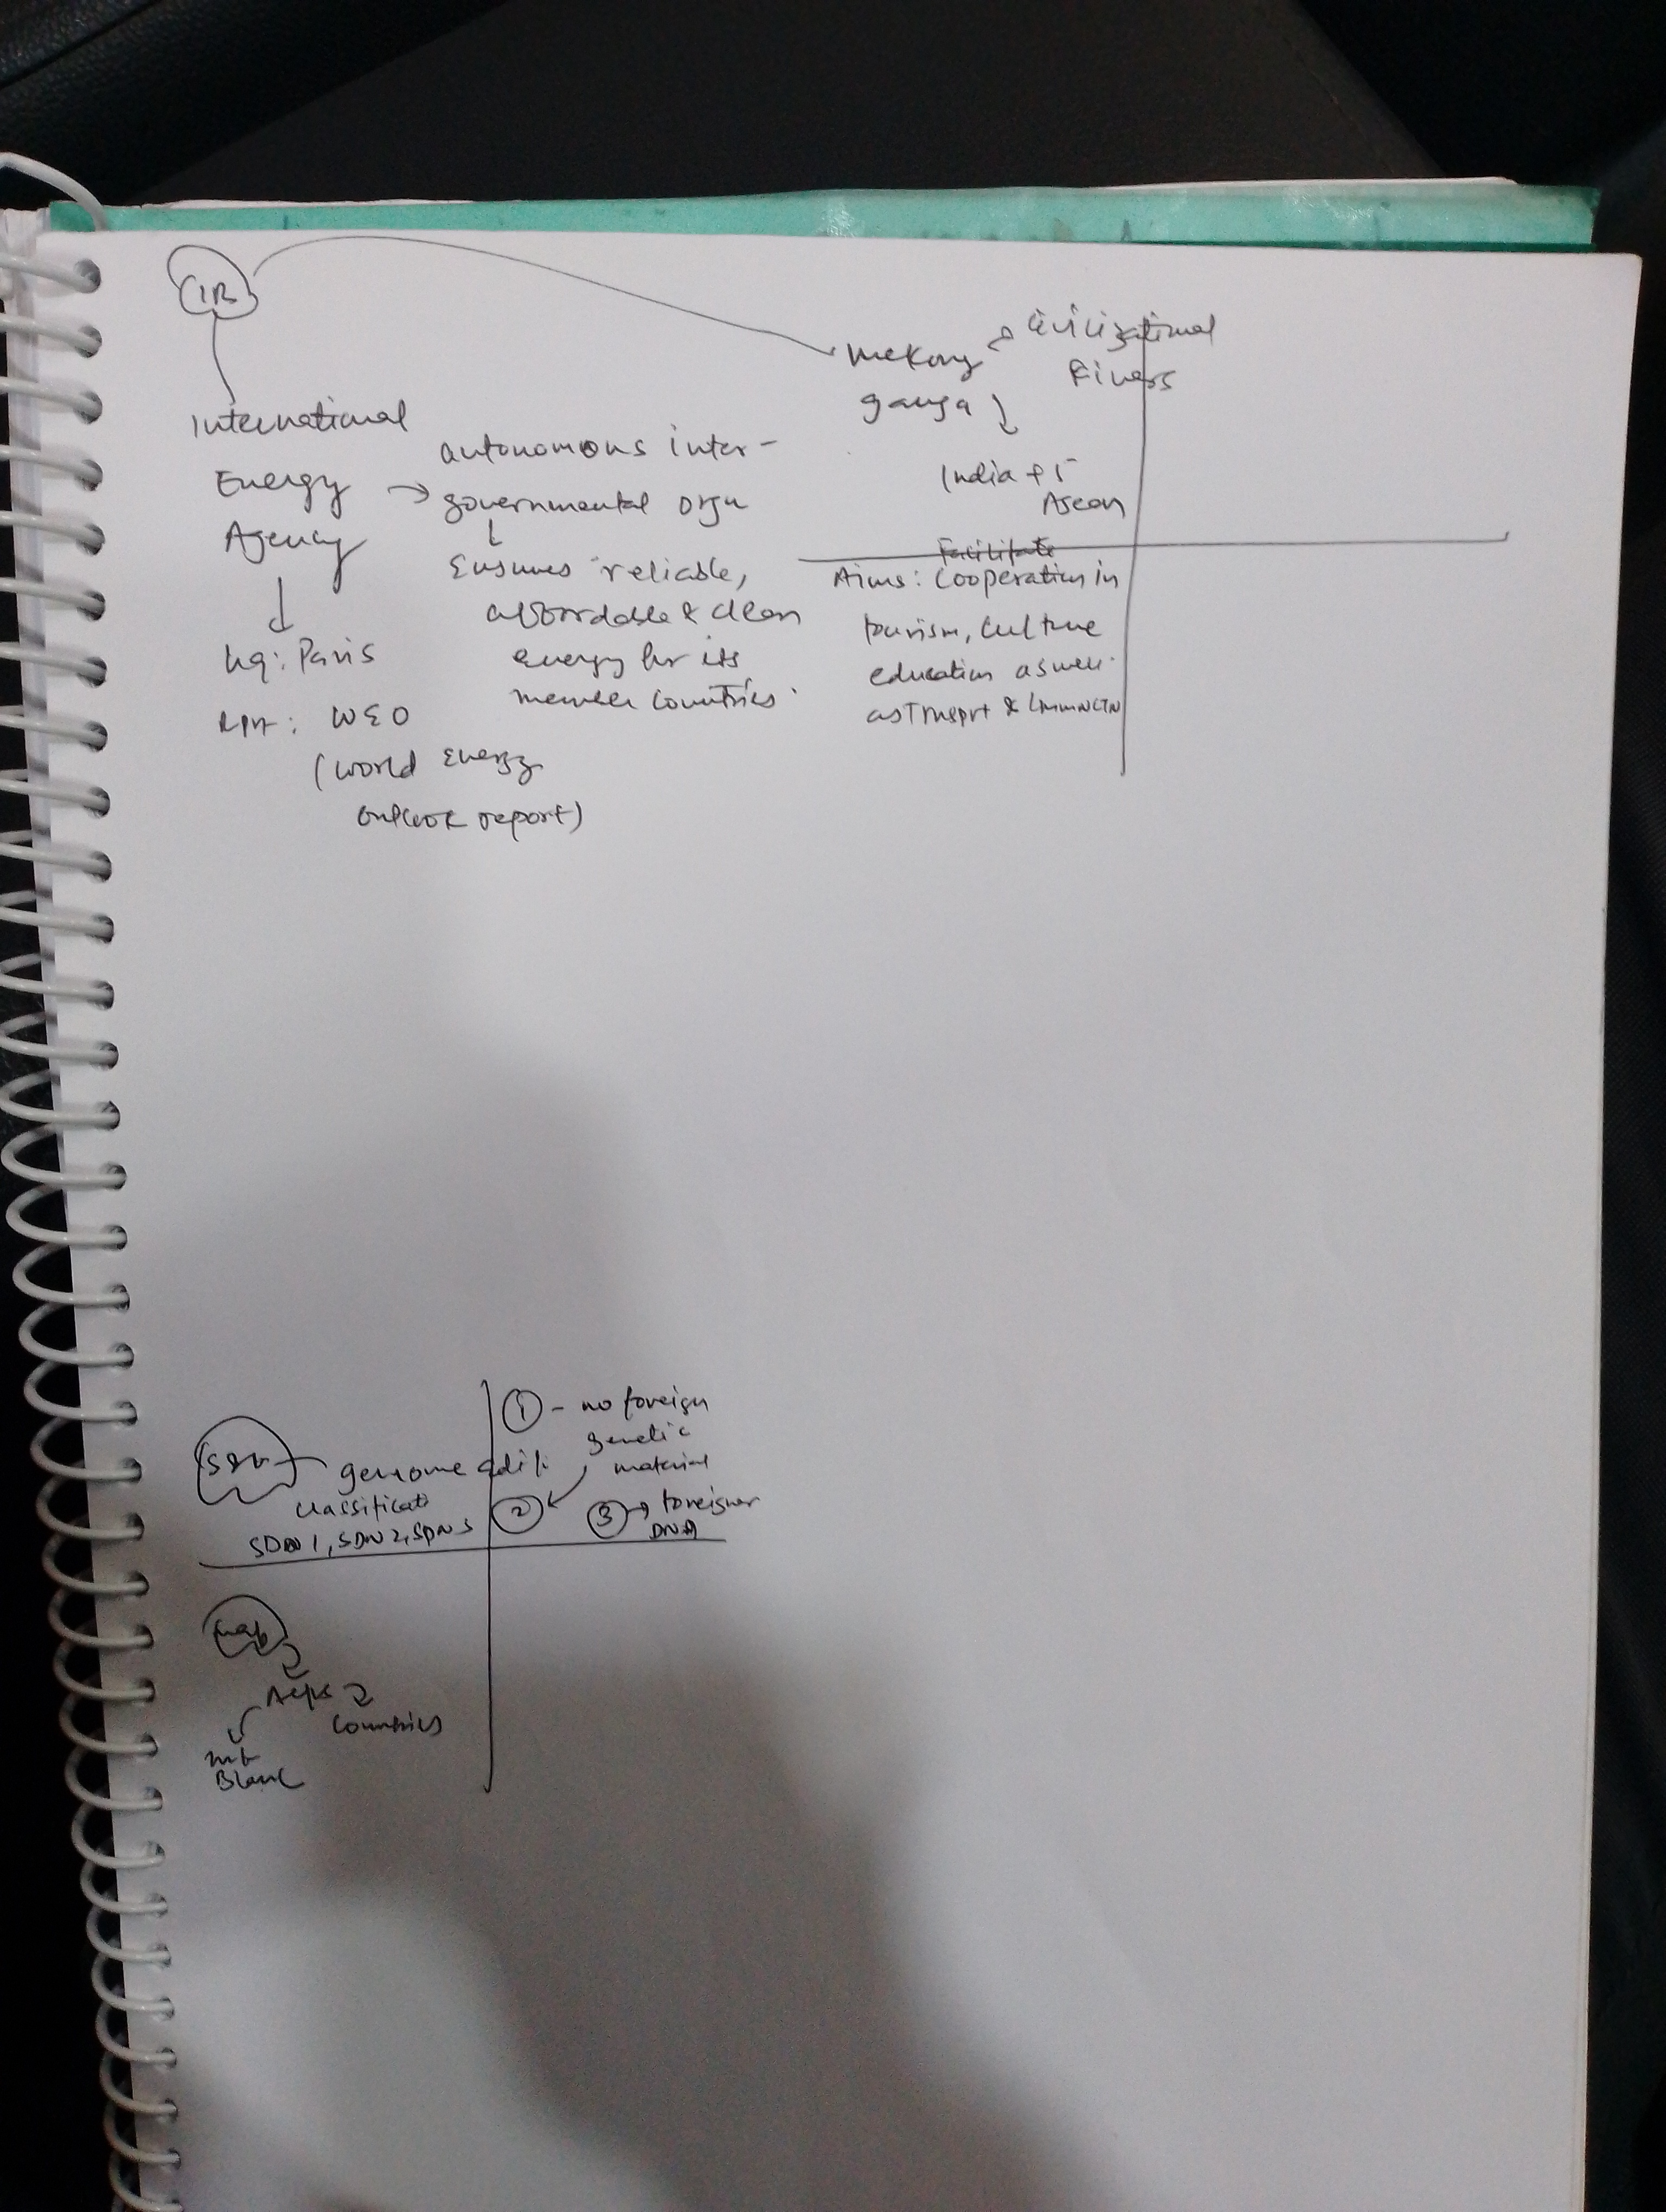 IR
International
Energy
Agency
hq: Paris
Rpt: WEO
(World Energy
outlook report)
→ autonomous inter-
governmental orgn
Ensures reliable,
affordable & clean
energy for its
member countries.
Mekong
ganga
Civilizational
Rivers
India + 5
Asean
Facilitate
Aims: Cooperation in
tourism, culture
education as well
as Trnsprt & CmmNCTN
S&T
genome edit
classificati
SDN 1, SDN 2, SDN 3
① - no foreign
genetic
material
②
③ → foreigner
DNA
map
Alps
Countries
mt
Blanc